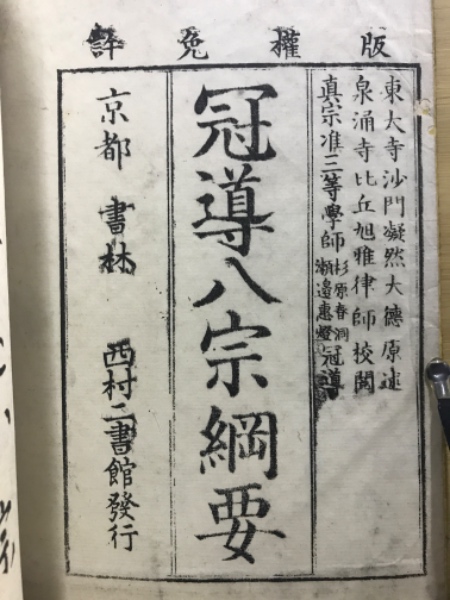 版權免許
東大寺沙門凝然大德原述
泉涌寺比丘旭雅律師校閲
真宗准三等學師 杉原春洞 瀬邊惠燈 冠導
冠導八宗綱要
京都 書林 西村二書館發行